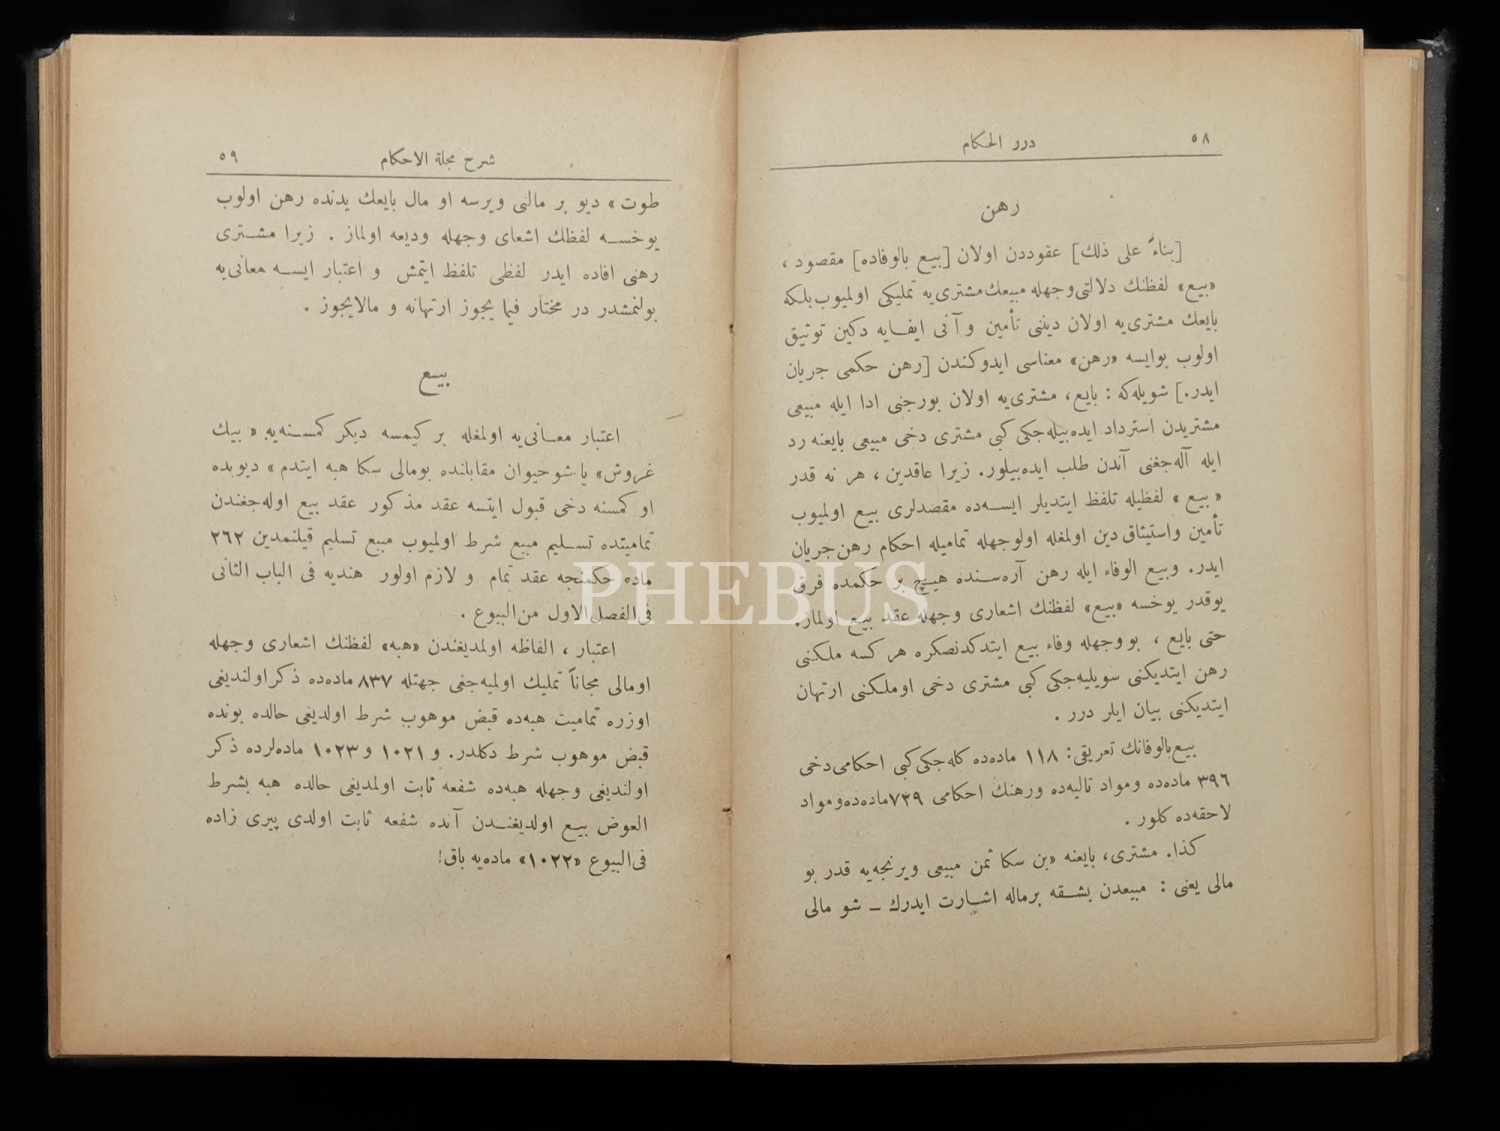 ٥٨
درر الحكام
رهن
[بناءً على ذلك] عقوددن اولان [بيع بالوفاده] مقصود ،
«بيع» لفظنك دلالتى وجهله مبيعك مشترى‌يه تمليكى اولميوب بلكه
بايعك مشترى‌يه اولان ديننى تأمين و آنى ايفايه دكين توثيق
اولوب بوايسه «رهن» معناسى ايدوكندن [رهن حكمى جريان
ايدر.] شويله‌كه : بايع، مشترى‌يه اولان بورجنى ادا ايله مبيعى
مشتريدن استرداد ايده‌بيله‌جكى كبى مشترى دخى مبيعى بايعنه رد
ايله آله‌جغنى آندن طلب ايده‌بيلور. زيرا عاقدين ، هر نه قدر
«بيع» لفظيله تلفظ ايتديلر ايسه‌ده مقصدلرى بيع اولميوب
تأمين واستيثاق دين اولمغله اولوجهله تماميله احكام رهن جريان
ايدر. وبيع الوفاء ايله رهن آره‌سنده هيچ بر حكمده فرق
يوقدر يوخسه «بيع» لفظنك اشعارى وجهله عقد بيع اولماز.
حتى بايع ، بو وجهله وفاء بيع ايتدكدنصكره هر كسه ملكنى
رهن ايتديكنى سويليه‌جكى كبى مشترى دخى اوملكنى ارتهان
ايتديكنى بيان ايلر درر .
بيع بالوفانك تعريقى: ١١٨ ماده‌ده كله‌جكى كبى احكامى دخى
٣٩٦ ماده‌ده ومواد تاليه‌ده ورهنك احكامى ٧٢٩ ماده‌ده ومواد
لاحقه‌ده كلور .
كذا. مشترى، بايعنه «بن سكا ثمن مبيعى ويرنجه‌يه قدر بو
مالى يعنى : مبيعدن بشقه برماله اشارت ايدرك ــ شو مالى
شرح مجلة الاحكام
٥٩
طوت» ديو بر مالنى ويرسه او مال بايعك يدنده رهن اولوب
يوخسه لفظك اشعاى وجهله وديعه اولماز . زيرا مشترى
رهنى افاده ايدر لفظى تلفظ ايتمش و اعتبار ايسه معانى‌يه
بولنمشدر در مختار فيما يجوز ارتهانه و مالايجوز .
بيع
اعتبار معانى‌يه اولمغله بر كيمسه ديكر كمسنه‌يه «بيك
غروش» يا «شو حيوان مقابلنده بومالى سكا هبه ايتدم» ديوبده
او كمسنه دخى قبول ايتسه عقد مذكور عقد بيع اوله‌جغندن
تماميتده تسليم مبيع شرط اولميوب مبيع تسليم قيلنمدين ٢٦٢
ماده حكمنجه عقد تمام و لازم اولور هنديه فى الباب الثانى
فى‌الفصل الاول من البيوع .
اعتبار ، الفاظه اولمديغندن «هبه» لفظنك اشعارى وجهله
اومالى مجاناً تمليك اولميه‌جغى جهتله ٨٣٧ ماده‌ده ذكر اولنديغى
اوزره تماميت هبه‌ده قبض موهوب شرط اولديغى حالده بونده
قبض موهوب شرط دكلدر. و ١٠٢١ و ١٠٢٣ ماده‌لرده ذكر
اولنديغى وجهله هبه‌ده شفعه ثابت اولمديغى حالده هبه بشرط
العوض بيع اولديغندن آنده شفعه ثابت اولدى پيرى زاده
فى‌البيوع «١٠٢٢» ماده‌يه باق!
PHEBUS